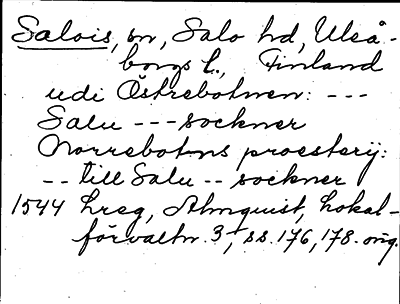 Salois, sn, Salo hd, Uleå-
borgs l., Finland
udi Östrebotnen: ---
Salu --- sockner
Norrebotns proesterij:
-- till Salu -- sockner
1544 hreg, Almquist, Lokal-
förvaltn. 3, ss. 176, 178. orig.